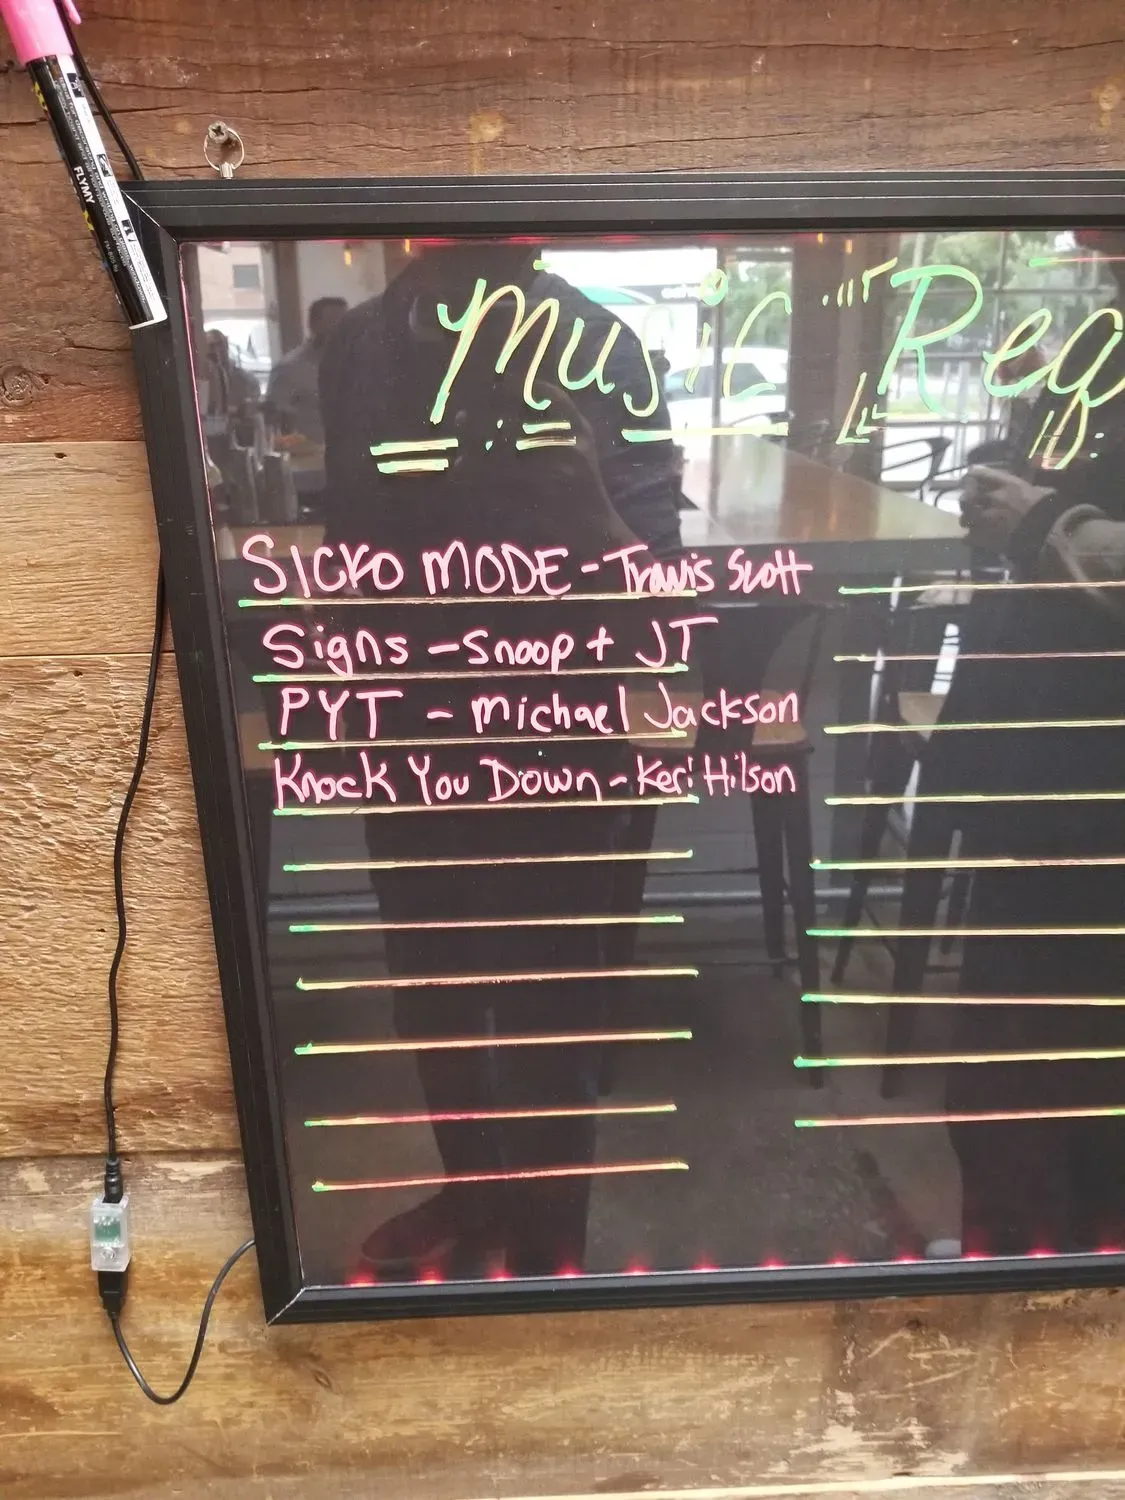 FLYMY
Music Req
SICKO MODE - Travis Scott
Signs - Snoop + JT
PYT - Michael Jackson
Knock You Down - Keri Hilson